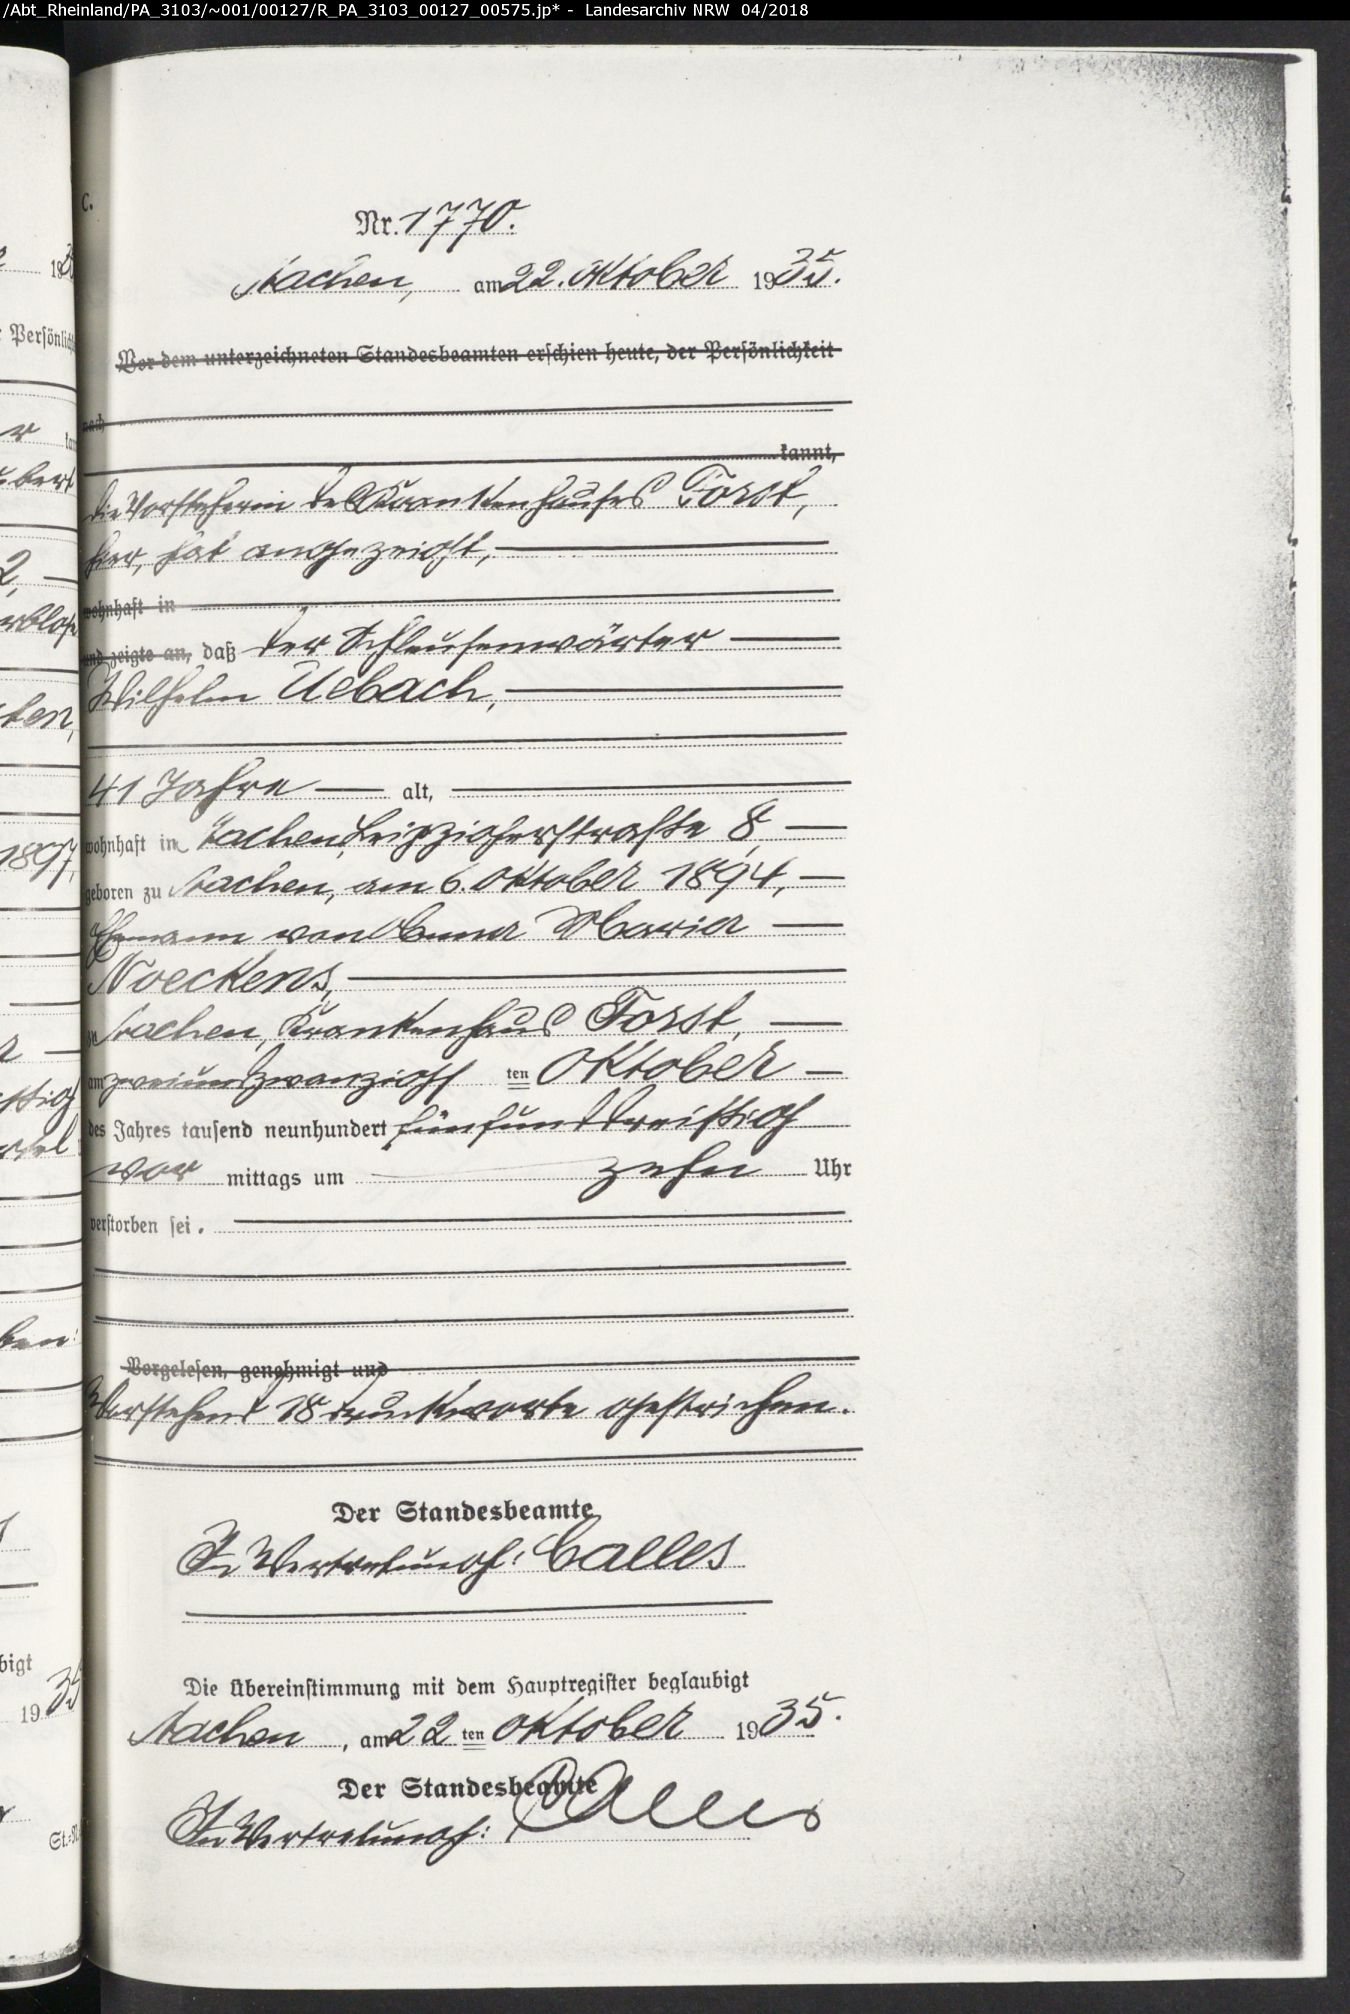 /Abt_Rheinland/PA_3103/~001/00127/R_PA_3103_00127_00575.jp* - Landesarchiv NRW 04/2018
C.
Nr. 1770.
Aachen, am 22. Oktober 1935.
Vor dem unterzeichneten Standesbeamten erschien heute, der Persönlichkeit
nach
kannt,
die Vorsteherin des Krankenhauses Forst,
hier, hat angezeigt,
wohnhaft in
und zeigte an, daß der Schleusenwärter
Wilhelm Uebach,
41 Jahre alt,
wohnhaft in Aachen, Leipzigerstraße 8,
geboren zu Aachen, am 6. Oktober 1894,
Ehemann von Anna Maria
Noeckens,
zu Aachen, Krankenhaus Forst,
am zweiundzwanzigsten Oktober
des Jahres tausend neunhundert fünfunddreißig
vor mittags um zehn Uhr
verstorben sei.
Vorgelesen, genehmigt und
Vorstehend 18 Druckworte gestrichen.
Der Standesbeamte
In Vertretung: Calles
Die Übereinstimmung mit dem Hauptregister beglaubigt
Aachen, am 22 ten Oktober 1935.
Der Standesbeamte
In Vertretung: Calles